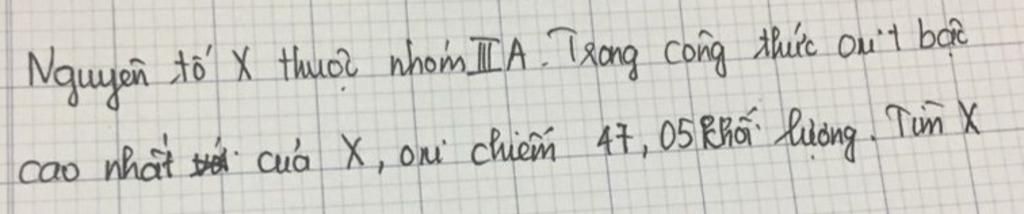 Nguyên tố X thuộc nhóm IIIA. Trong công thức oxit bậc
cao nhất của X, oxi chiếm 47,05 khối lượng. Tìm X